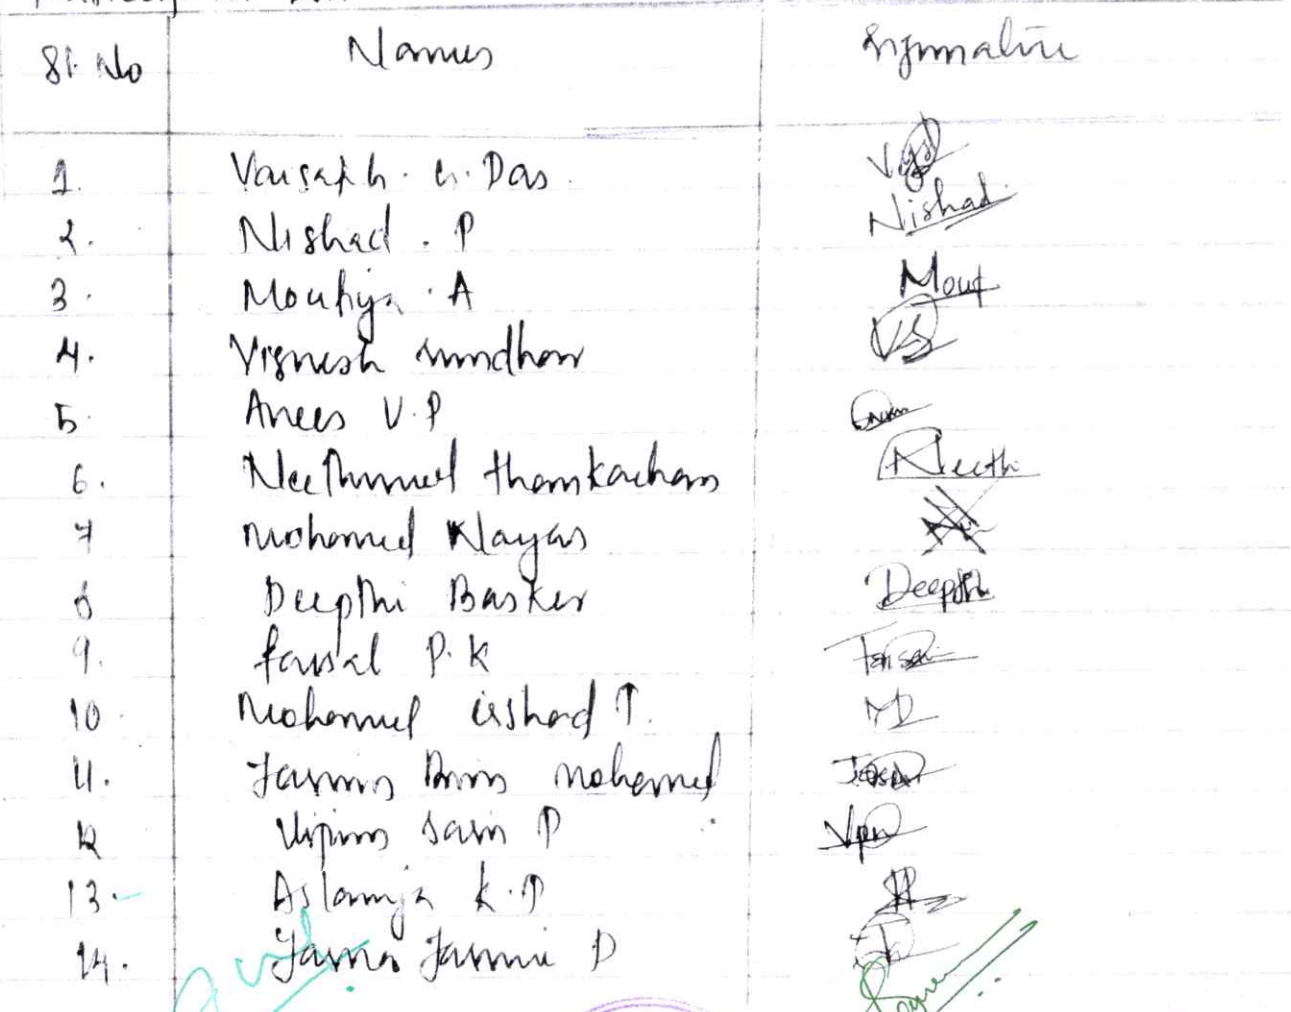 Sl. No Names Signature
1. Vaisakh. G. Das
2. Nishad. P Nishad
3. Moufiya. A Mouf
4. Vignesh sundhar VS
5. Anees V.P
6. Neethumol thankachan Neeth
7 Mohamed Nayas
8 Deepthi Basker Deepthi
9. faisal P.K Faisal
10 Mohamed irshad T. MD
11. Jasmin Mohamed
12 Vipin sain P Vpn
13. Aslamiya K.P
14. Jasna Jasmin P